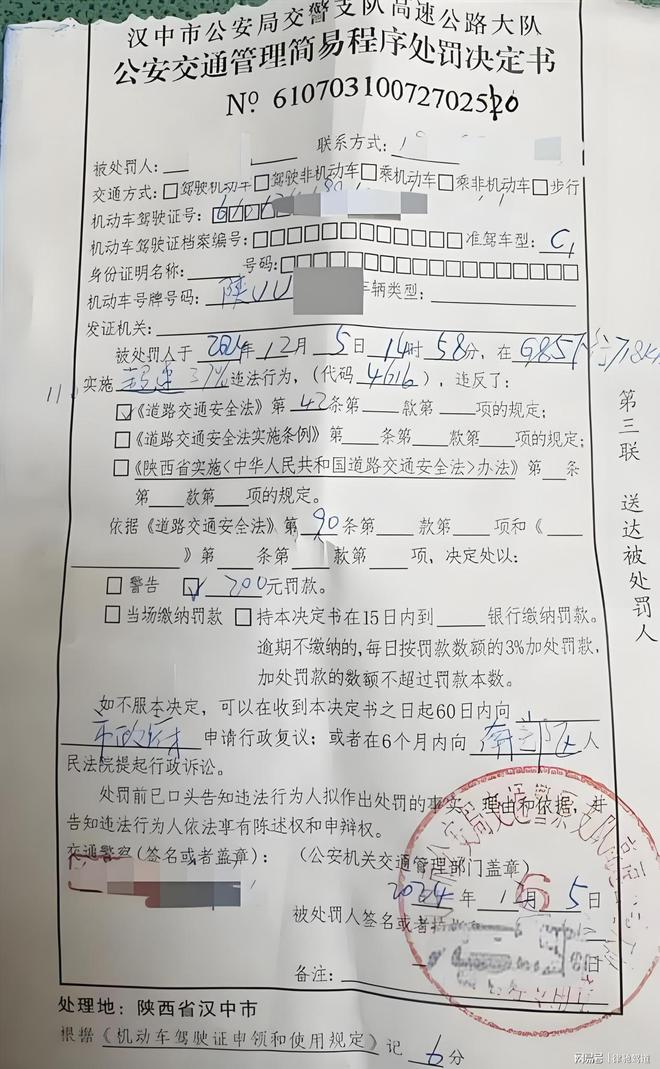 汉中市公安局交警支队高速公路大队
公安交通管理简易程序处罚决定书
No 6107031007270252
被处罚人：
联系方式：
交通方式：□驾驶机动车□驾驶非机动车□乘机动车□乘非机动车□步行
机动车驾驶证号：
机动车驾驶证档案编号：□□□□□□□□□□□□准驾车型：C1
身份证明名称：号码：□□□□□□□□□□□□□□□□□□
机动车号牌号码：陕UU 车辆类型：
发证机关：
被处罚人于2024年12月5日14时58分，在G85
实施超速37%违法行为，（代码4616），违反了：
☑《道路交通安全法》第42条第 款第 项的规定；
□《道路交通安全法实施条例》第 条第 款第 项的规定；
□《陕西省实施〈中华人民共和国道路交通安全法〉办法》第 条
第 款第 项的规定。
依据《道路交通安全法》第90条第 款第 项和《
》第 条第 款第 项，决定处以：
□ 警告 ☑ 200元罚款。
□ 当场缴纳罚款 □ 持本决定书在15日内到 银行缴纳罚款。
逾期不缴纳的，每日按罚款数额的3%加处罚款，
加处罚款的数额不超过罚款本数。
如不服本决定，可以在收到本决定书之日起60日内向
申请行政复议；或者在6个月内向 人
民法院提起行政诉讼。
处罚前已口头告知违法行为人拟作出处罚的事实、理由和依据，并
告知违法行为人依法享有陈述权和申辩权。
交通警察（签名或者盖章）：（公安机关交通管理部门盖章）
2024年 月5日
被处罚人签名或者
日
备注：
处理地：陕西省汉中市
根据《机动车驾驶证申领和使用规定》记6分
第三联 送达被处罚人
搜狐号